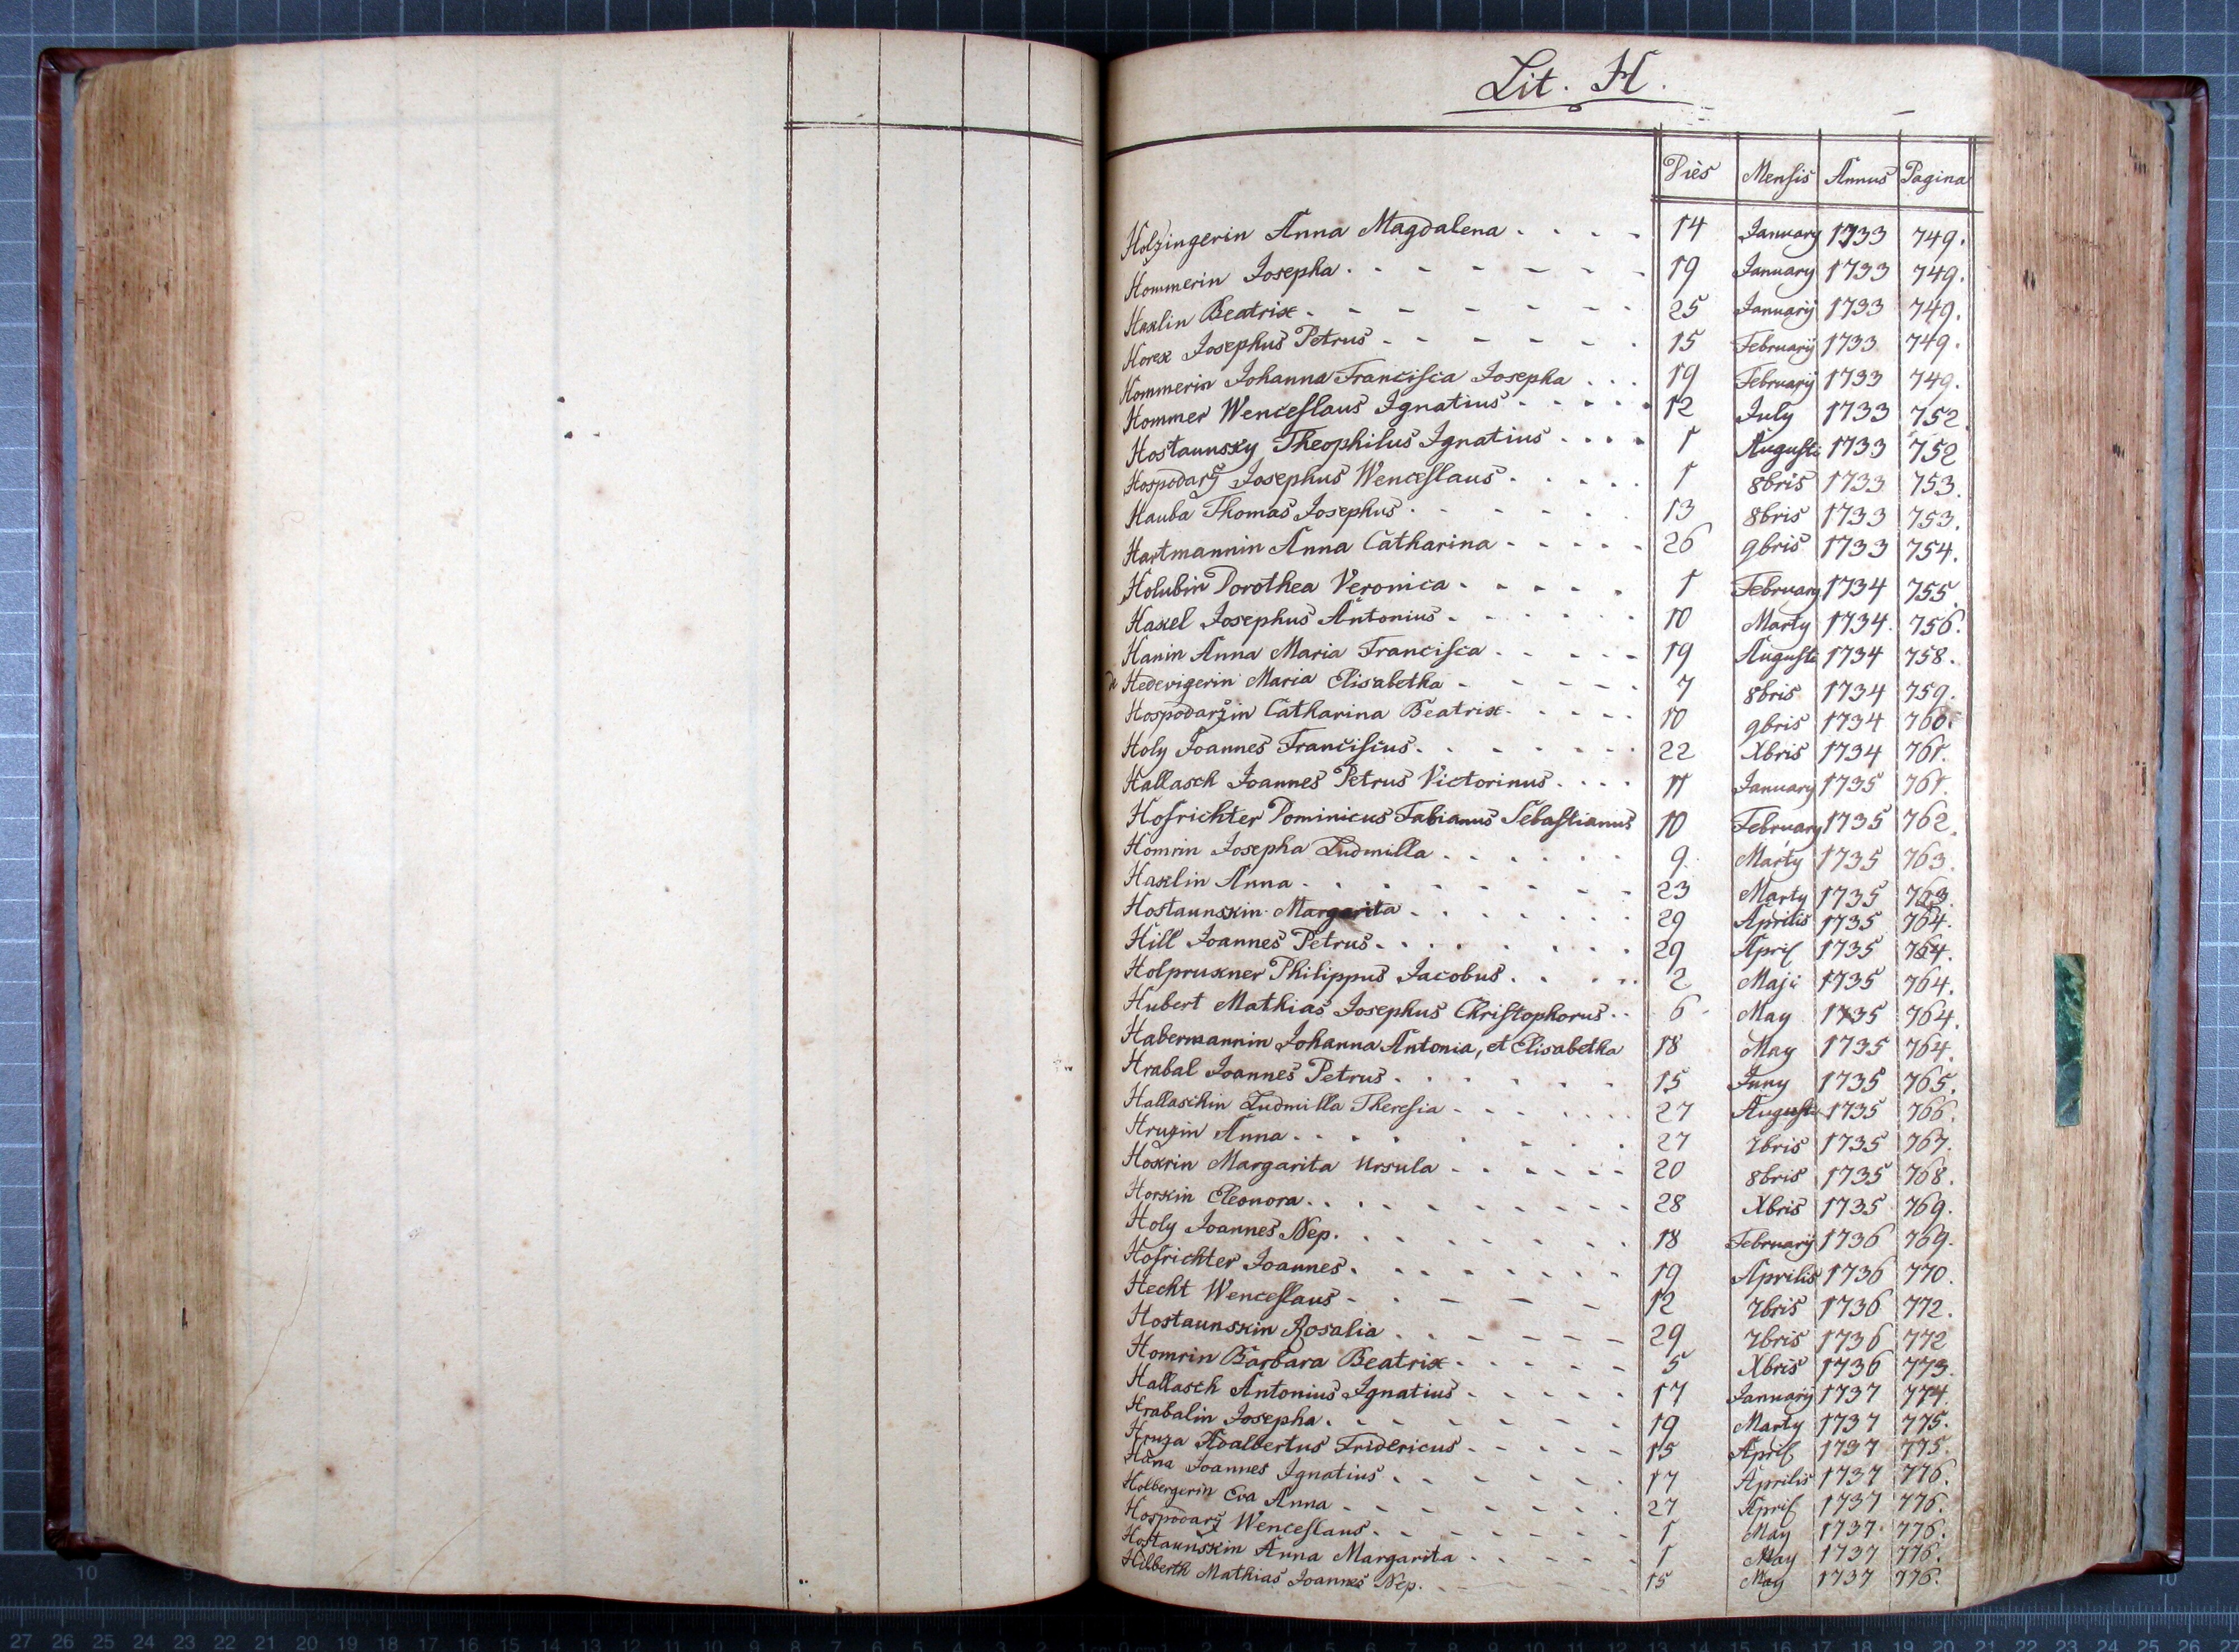 Lit. H.
Dies Mensis Annus Pagina
Holzingerin Anna Magdalena . . . . 14 January 1733 749.
Hommerin Josepha . - - - - - - - 19 January 1733 749.
Haxlin Beatrix - - - - - - - 25 Januarij 1733 749.
Horex Josephus Petrus - - - - - - 15 Februarij 1733 749.
Hommerin Johanna Francisca Josepha . . . 19 Februarij 1733 749.
Hommer Wenceslaus Ignatius . . . . . 12 July 1733 752.
Hostaunsky Theophilus Ignatius . . . . 1 Augusti 1733 752
Hospodarž Josephus Wenceslaus . . . . . 1 8bris 1733 753.
Hauba Thomas Josephus . . . . . . 13 8bris 1733 753.
Hartmannin Anna Catharina - - - - - 26 9bris 1733 754.
Holubin Dorothea Veronica . . . . . 1 February 1734 755.
Haxel Josephus Antonius . . . . . . 10 Marty 1734. 756.
Hanin Anna Maria Francisca . . . . . 19 Augusti 1734 758.
Hedevigerin Maria Elisabetha - - - - - 7 8bris 1734 759.
Hospodaržin Catharina Beatrix . . . . . 10 9bris 1734 760.
Holy Joannes Franciscus . . . . . . . 22 Xbris 1734 761.
Hallasch Joannes Petrus Victorinus . . . . 11 January 1735 761.
Hofrichter Dominicus Fabianus Sebastianus 10 February 1735 762.
Homrin Josepha Ludmilla . . . . . . 9. Marty 1735 763.
Haxlin Anna . . . . . . . . . 23 Marty 1735 763.
Hostaunskin Margarita . . . . . . . 29 Aprilis 1735 764.
Hill Joannes Petrus . . . . . . . . 29 April 1735 764.
Holpruxner Philippus Jacobus . . . . . 2 Maji 1735 764.
Hubert Mathias Josephus Christophorus . . 6 May 1735 764.
Habermannin Johanna Antonia, et Elisabetha 18 May 1735 764.
Hrabal Joannes Petrus . . . . . . . 15 Juny 1735 765.
Hallaschin Ludmilla Theresia . . . . . . 27 Augusti 1735 766.
Hruzin Anna . . . . . . . . . 27 7bris 1735 767.
Hoxrin Margarita Ursula . . . . . . 20 8bris 1735 768.
Horxin Eleonora . . . . . . . . . 28 Xbris 1735 769.
Holy Joannes Nep. . . . . . . . . 18 Februarij 1736 769.
Hofrichter Joannes . . . . . . . . 19 Aprilis 1736 770.
Hecht Wenceslaus - - - - - - 12 7bris 1736 772.
Hostaunskin Rosalia . . - - - - - 29 7bris 1736 772
Homrin Barbara Beatrix . . . . . . 5 Xbris 1736 773.
Hallasch Antonius Ignatius . . . . . 17 Januarij 1737 774.
Hrabalin Josepha . . . . . . . . 19 Marty 1737 775.
Hruza Adalbertus Fridericus . . . . . 15 April 1737 775.
Hana Joannes Ignatius . . . . . . 17 Aprilis 1737 776.
Holbergerin Eva Anna . . . . . . . 27 April 1737 776.
Hospodarž Wenceslaus . . . . . . . 1 May 1737 776.
Hostaunskin Anna Margarita . . . . . 1 May 1737 776.
Hilberth Mathias Joannes Nep. . . . . . 15 May 1737 776.